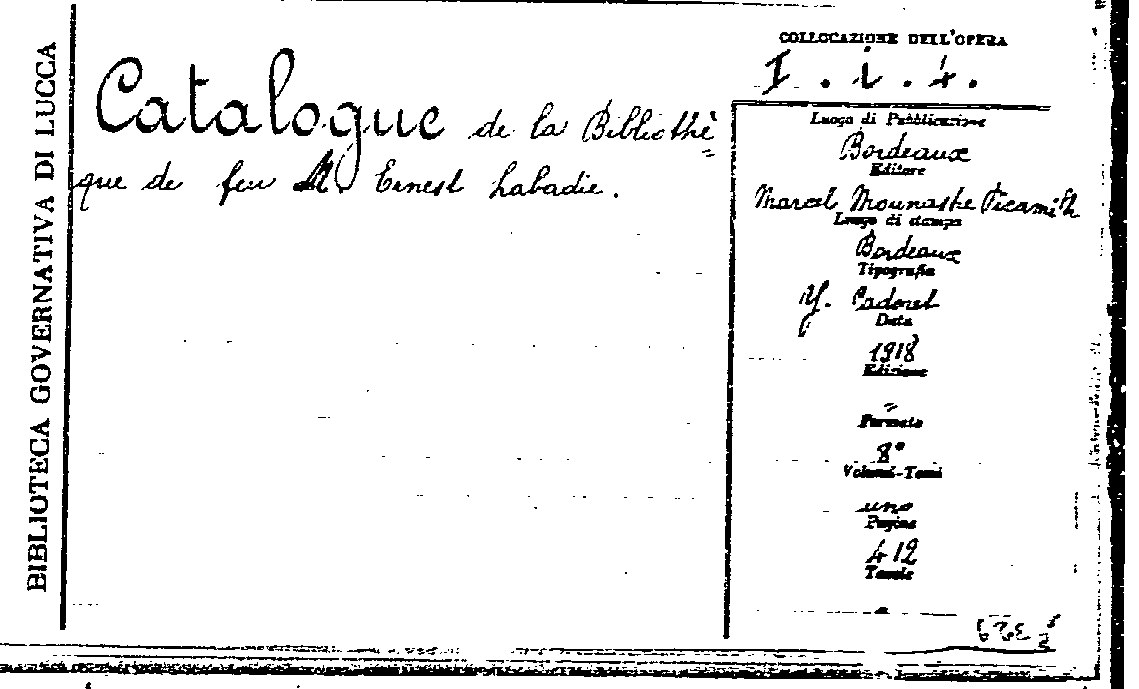 BIBLIOTECA GOVERNATIVA DI LUCCA
Catalogue de la Bibliothè
que de feu M. Ernest Labadie.
COLLOCAZIONE DELL'OPERA
I. i. 4.
Luogo di Pubblicazione
Bordeaux
Editore
Marcel Mounastre Picamilh
Luogo di stampa
Bordeaux
Tipografia
Y. Cadoret
Data
1918
Edizione
Formato
8°
Volumi-Tomi
uno
Pagine
412
Tavole